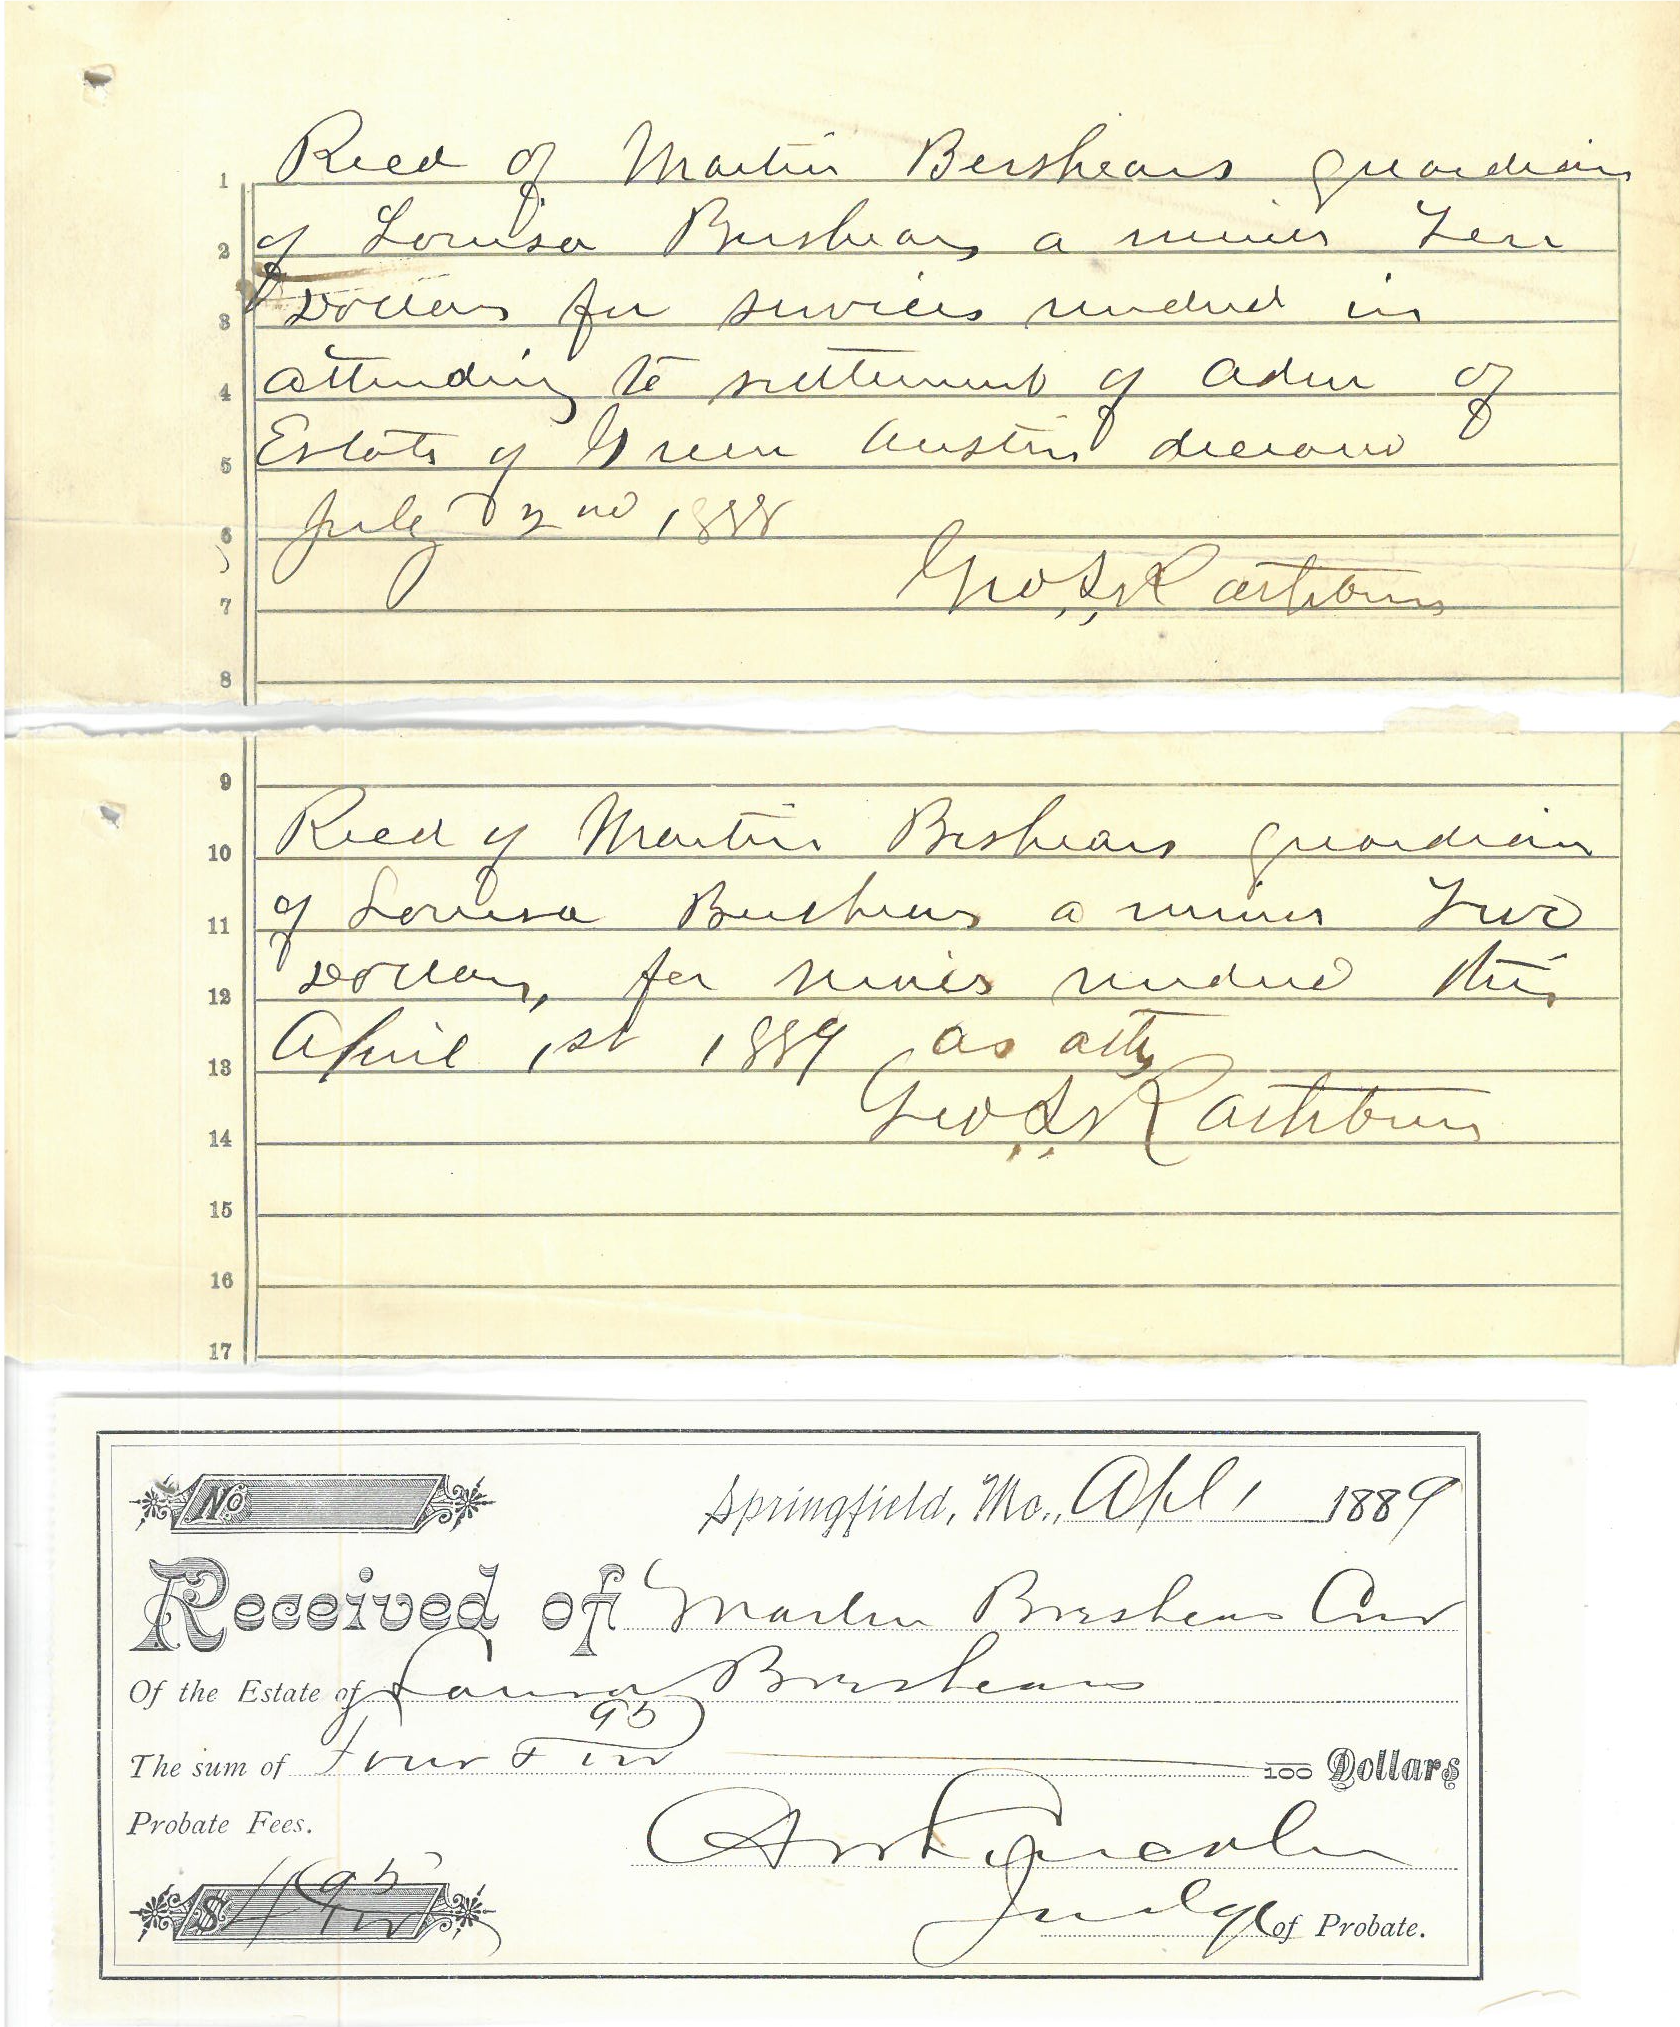 1 Recd of Martin Bershears guardian
2 of Louisa Bershears a minor Ten
3 Dollars for services rendered in
4 attending to settlement of Adm of
5 Estate of Green Austin deceased
6 July 2nd 1888
7 Geo. S. Rathbun
8
9
10 Recd of Martin Beshears guardian
11 of Louisa Beshears a minor Two
12 Dollars, for services rendered this
13 April 1st 1889 as atty
14 Geo. S. Rathbun
15
16
17
No
Springfield, Mo., Apl 1 1889
Received of Martin Breshears Cur
Of the Estate of Louisa Breshears
The sum of Four & 95/100 100 Dollars
Probate Fees.
Lincoln
$ 4 95/100
Judge of Probate.